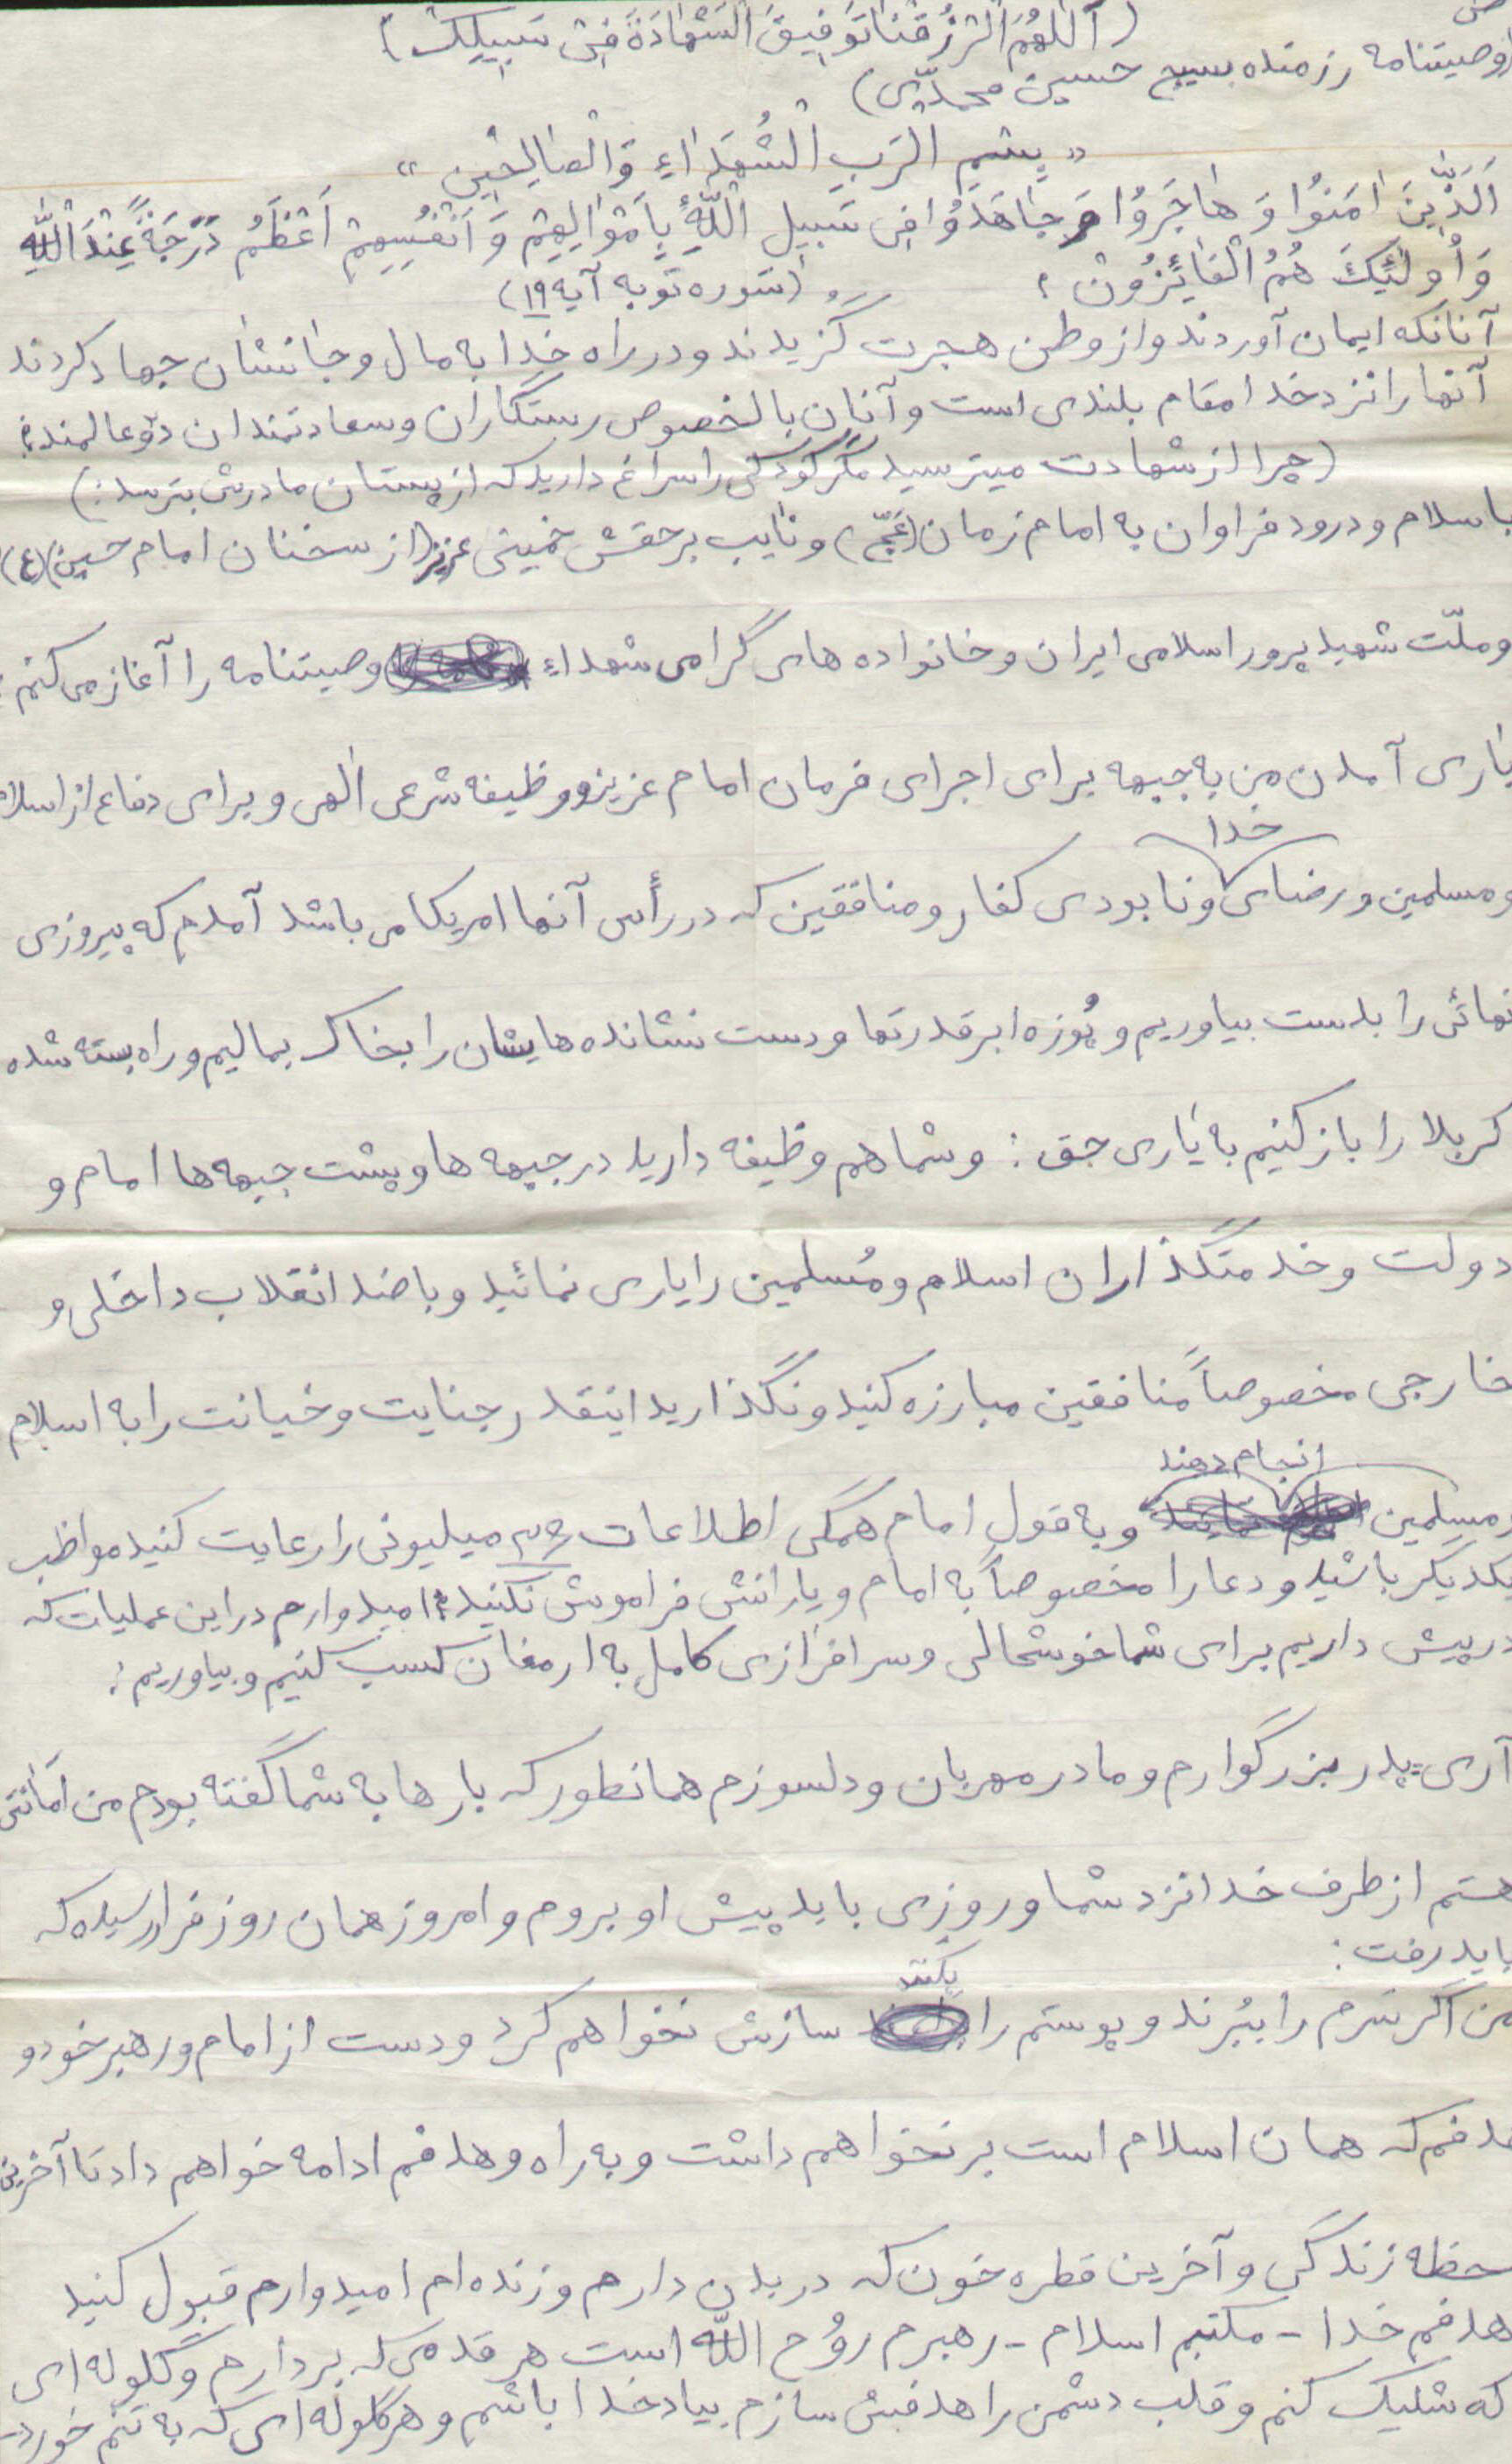 (اَللّهُمَ الرْزُقْنا تَوَفیقَ الشَهادَةَ فی سَبیلِکْ)
(وصیتنامه رزمنده بسیج حسین محمدپی)
«بِسْمِ الرَبِ الْشُهَداءِ وَالْصالِحین»
اَلَذّینَ امَنوُا وَ هاجَروُا وَ جاهَدوُا فی سَبیلِ اللّهِ بِاَمْوالِهِمْ وَ اَنْفُسِهِمْ اَعْظَمُ دَرَجَةً عِنْدَ اللّهِ
وَ اُولئِکَ هُمُ الْفائِزُونْ؛ (سوره توبه آیه ۱۹)
آنانکه ایمان آوردند و از وطن هجرت گزیدند و در راه خدا به مال و جانشان جهاد کردند
آنها را نزد خدا مقام بلندی است و آنان بالخصوص رستگاران و سعادتمندان دو عالمند؛
(چرا از شهادت میترسید مگر کودکی را سراغ دارید که از پستان مادرش بترسد:)
باسلام و درود فراوان به امام زمان (عج) و نایب برحقش خمینی عزیز (از سخنان امام حسین) (ع)
و ملّت شهید پرور اسلامی ایران و خانواده های گرامی شهداء وصیتنامه را آغاز می کنم:
یاری آمدن من به جبهه برای اجرای فرمان امام عزیز و وظیفه شرعی الهی و برای دفاع از اسلام
خدا
و مسلمین و رضای و نابودی کفار و منافقین که در رأس آنها امریکا می باشد آمدم که پیروزی
نهائی را بدست بیاوریم و پُوزه ابرقدرتها و دست نشانده هایشان را بخاک بمالیم و راه بسته شده
کربلا را باز کنیم به یاری حق: و شما هم وظیفه دارید در جبهه ها و پشت جبهه ها امام و
دولت و خدمتگذاران اسلام و مُسلمین را یاری نمائید و با ضد انقلاب داخلی و
خارجی مخصوصاً منافقین مبارزه کنید و نگذارید اینقدر جنایت و خیانت را به اسلام
انجام دهند
و مسلمین و به قول امام همگی اطلاعات ۳۶ میلیونی را رعایت کنید مواظب
یکدیگر باشید و دعا را مخصوصاً به امام و یارانش فراموش نکنید؛ امیدوارم در این عملیات که
در پیش داریم برای شما خوشحالی و سرافرازی کامل به ارمغان کسب کنیم و بیاوریم:
آری پدر بزرگوارم و مادر مهربان و دلسوزم همانطور که بارها به شما گفته بودم من اَمانتی
هستم از طرف خدا نزد شما و روزی باید پیش او بروم و امروز همان روز فرا رسیده که
باید رفت:
بکنند
من اگر سَرم را ببُرند و پوستم را سازش نخواهم کرد و دست از امام و رهبر خود و
هدفم که همان اسلام است بر نخواهم داشت و به راه و هدفم ادامه خواهم داد تا آخرین
لحظه زندگی و آخرین قطره خون که در بدن دارم و زنده ام امیدوارم قبول کنید
هدفم خدا - مکتبم اسلام - رهبرم روُح اللّه است هر قدمی که بردارم و گلوله ای
که شلیک کنم و قلب دشمن را هدفش سازم بیاد خدا باشم و هر گلوله ای که به تنم خورد-